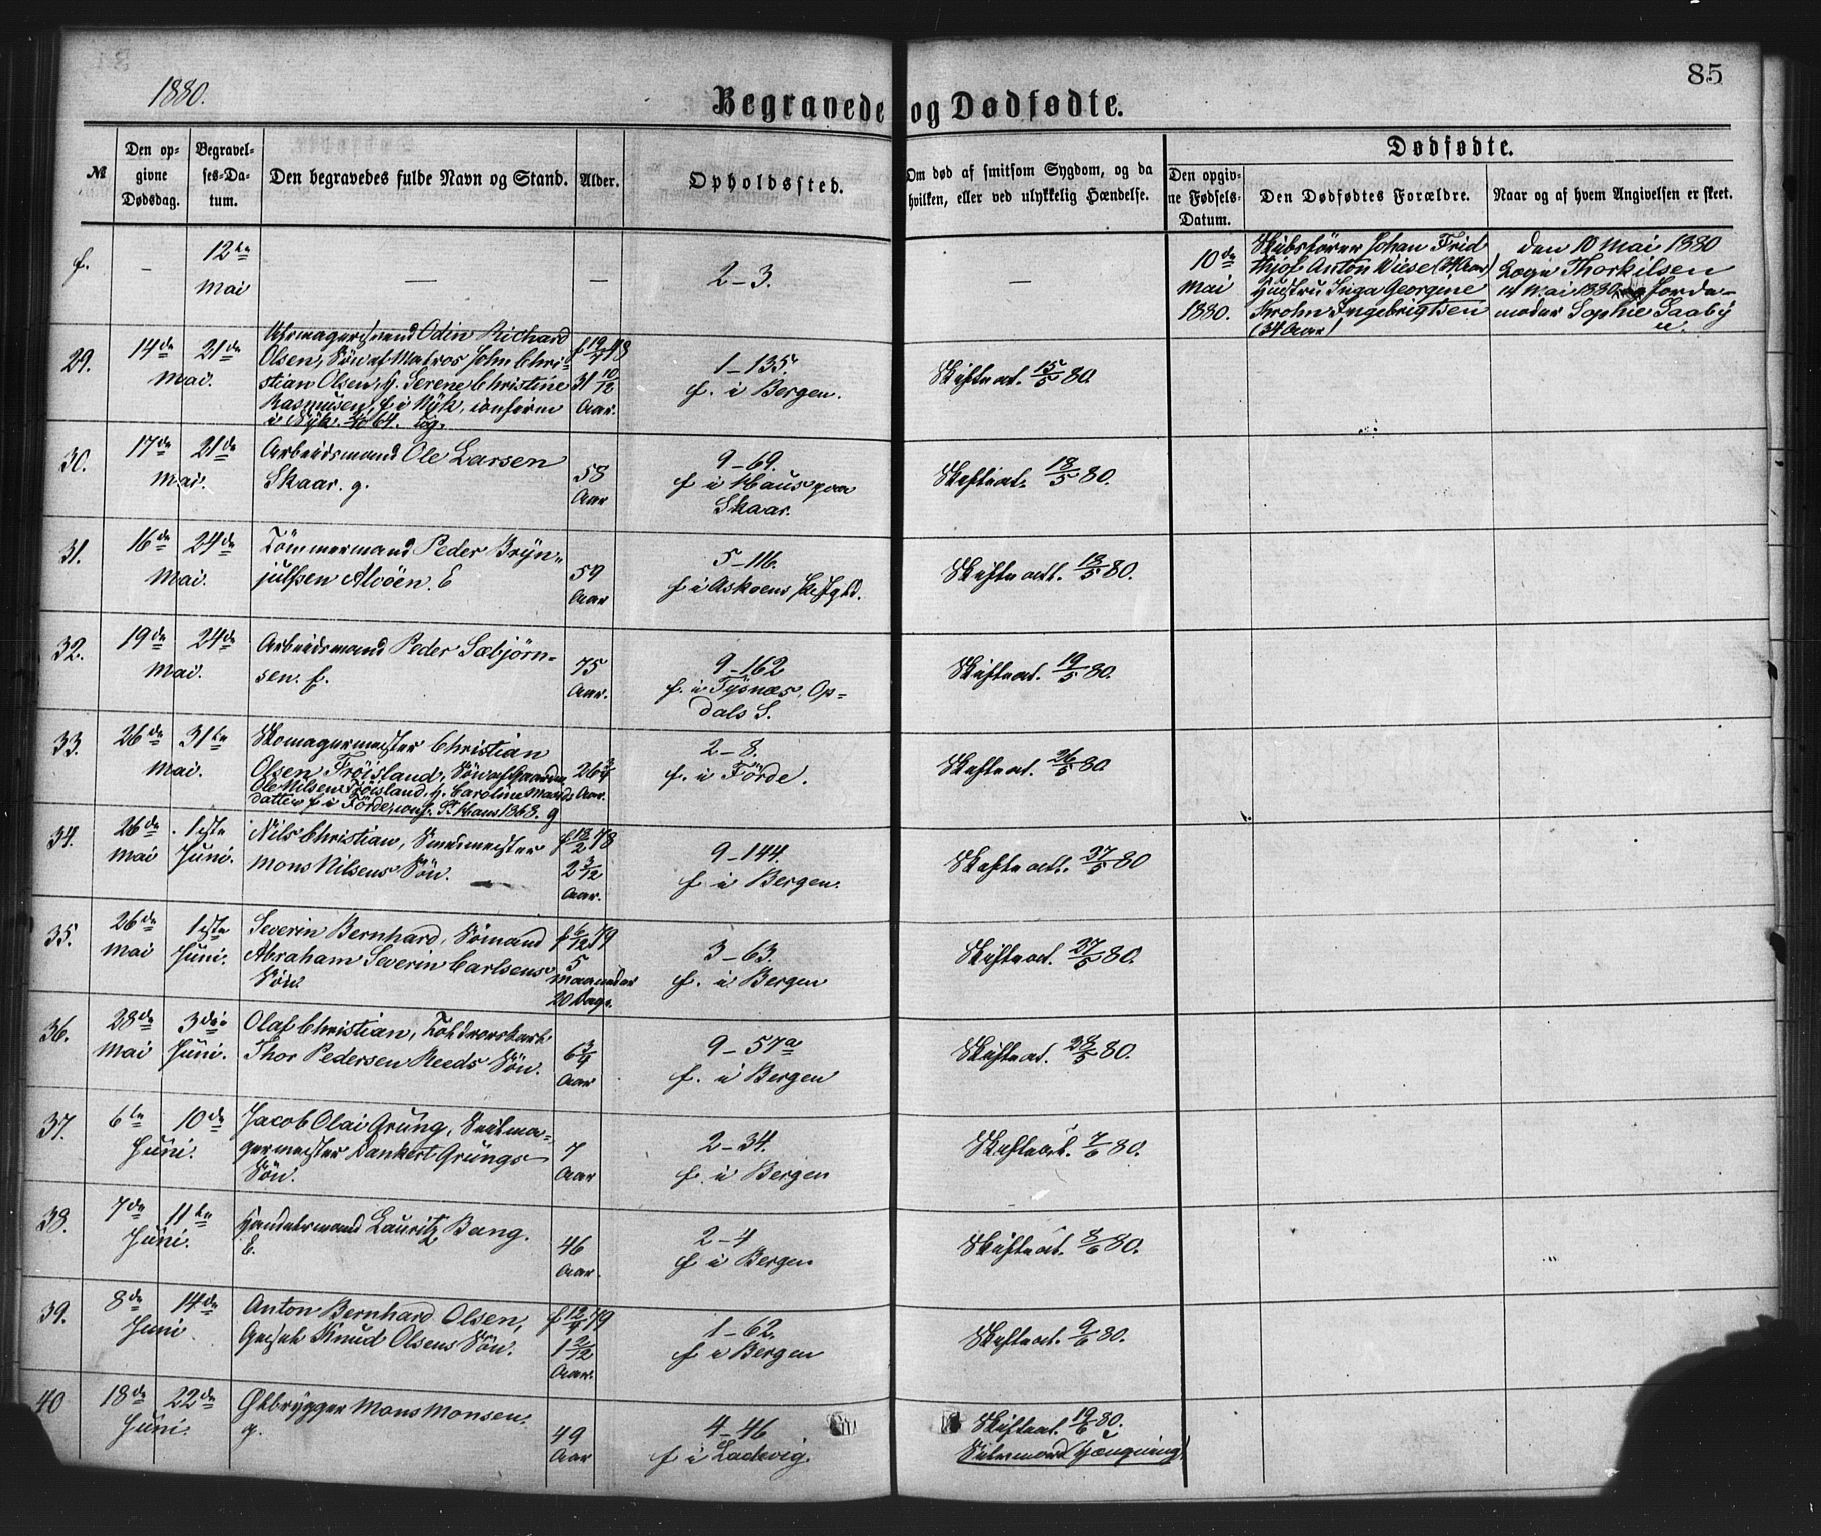 1880.
85
Begravede og Dødfødte.
№
Den opgivne Dødsdag.
Begravelses-Datum.
Den begravedes fulde Navn og Stand.
Alder.
Opholdssted.
Om død af smitsom Sygdom, og da hvilken, eller ved ulykkelig Hændelse.
Dødfødte.
Den opgivne Fødsels-Datum.
Den Dødfødtes Forældre.
Naar og af hvem Angivelsen er skeet.
f. — 12te — — 2-3. — 10de Skibsfører Johan Frid den 10 Mai 1880
Mai Mai thjof Anton Wiese (34 Aar) Læge Thorkilsen
1880. Hustru Inga Georgine 14 Mai 1880 Jorde-
Krohn Ingebrigtsen moder Sophie Saaby
(34 Aar)
29. 14de 21de Uhrmagersvend Odin Richard f. 48 1-135. Skifteat. 15/5 80.
Mai. Olsen, Søn af Matros John Chri- 31 10/12 f. i Bergen.
stian Olsen, H. Serene Christine Aar.
Rasmusen, f. i Nÿk. confirm
i Nÿk. 64.
30. 17de 21de Arbeidsmand Ole Larsen 58 9-69. Skifteat. 18/5 80.
Mai. Skaar. g. Aar f i Haus paa
Skaar.
31. 16de 24de Tömmermand Peder Brÿn- 59 5-116. Skifteatt. 18/5 80.
Mai. julfsen Alvöen. E Aar f i Askoens
32. 19de 24de Arbeidsmand Peder Sæbjörn- 75 9-162 Skifteat. 19/5 80.
Mai. sen. f. Aar. f. i Tÿsnæs, Op-
dals S.
33. 26de 31te Skomagermester Christian 26 3/4 2-8. Skifteat. 26/5 80.
Mai. Olsen Fröisland, Søn af Gaardm. Aar. f. i Förde.
Ole Nilsen Fröisland, H. Caroline
datter f i Förde, conf. St. Hans 1868. g
34. 26de 1ste Nils Christian, Smedmester f. 18/2 78 9-144. Skifteatt. 27/5 80
Mai Juni. Mons Nilsens Søn. 2 3/12 f i Bergen.
Aar.
35. 26de 1ste Severin Bernhard, Sömand f. 6/12 79 3-63. Skifteat. 27/5 80.
Mai Juni. Abraham Severin Carlsens 5 Maaneder f. i Bergen
Søn 20 Dage.
36. 28de 3die Olaf Christian, Toldrorskarl 6 3/4 9-57a Skifteat. 28/5 80.
Mai Juni. Thor Pedersen Reeds Søn. Aar f. i Bergen
37. 6te 10de Jacob Olai Grung, Seilma- 7 2-34. Skifteat. 7/6 80.
Juni. germester Dankert Grungs Aar f. i Bergen
Søn.
38. 7de 11te Handelsmand Lauritz Bang. 46 2-4 Skifteat. 8/6 80.
Juni. E. Aar. f i Bergen
39. 8de 14de Anton Bernhard Olsen, f. 12/4 79 1-62. Skifteat. 9/6 80.
Juni Knud Olsens Søn. 1 2/12 f i Bergen
Aar.
40 18de 22de Ølbrÿgger Mons Monsen. 49 4-46 Skifteat. 19/6 80.
Juni. g. Aar f i Ladevig. Selvmord (Hængning)